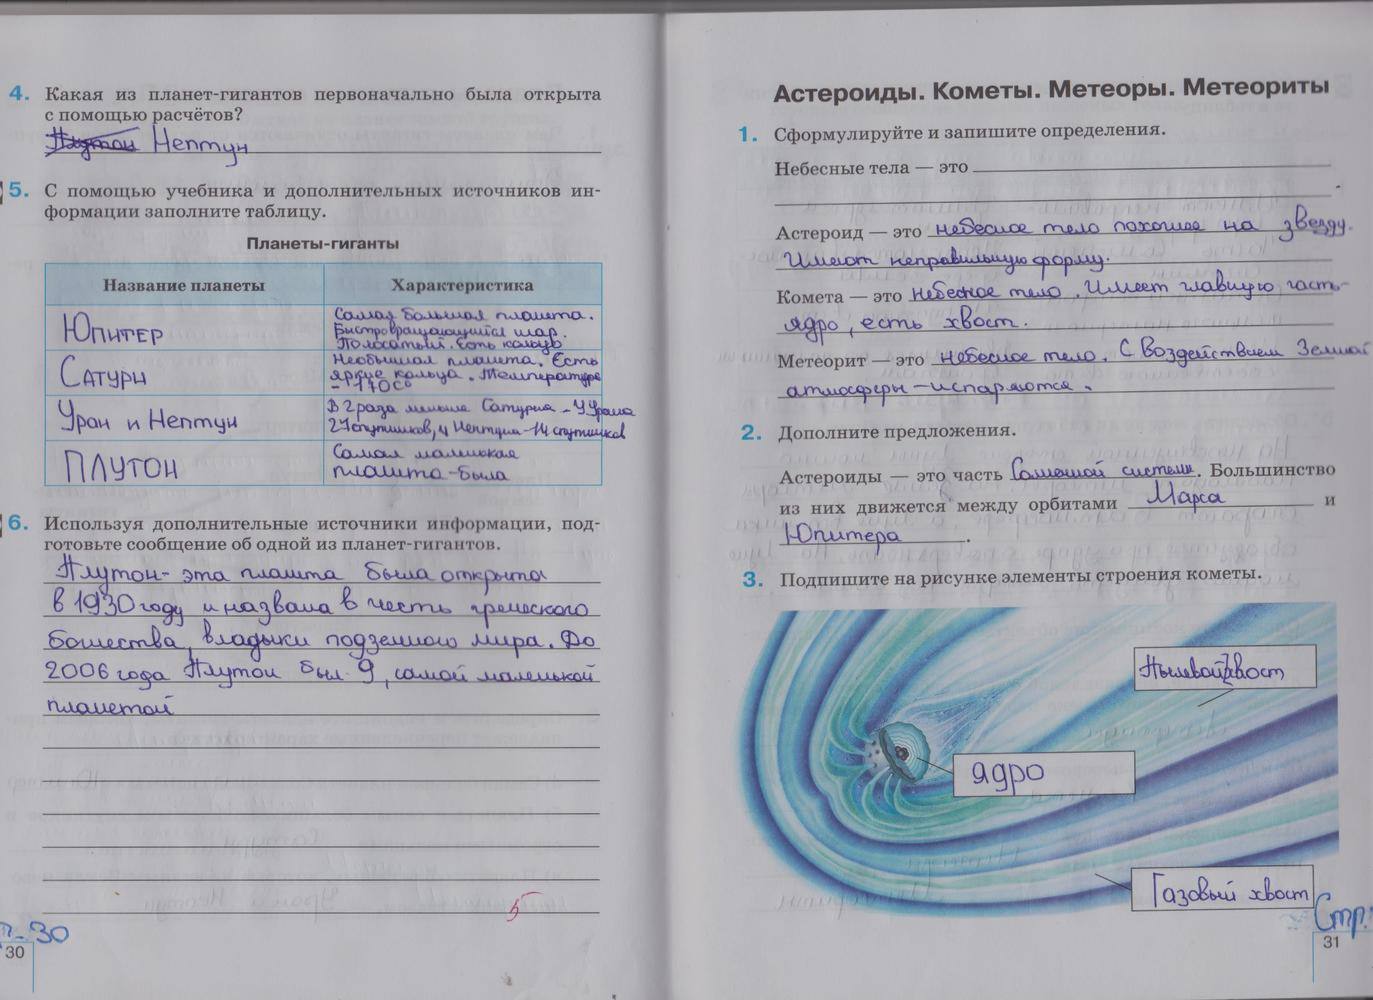 4. Какая из планет-гигантов первоначально была открыта
с помощью расчётов?
Плутон Нептун
5. С помощью учебника и дополнительных источников ин-
формации заполните таблицу.
Планеты-гиганты
Название планеты
Характеристика
Юпитер
Самая большая планета.
Быстровращающийся шар.
Полосатый. Есть кольцо
Сатурн
Необычная планета. Есть
яркие кольца. Температура
-170С°
Уран и Нептун
В 2 раза меньше Сатурна - У Урана
27 спутников, у Нептуна - 14 спутников
ПЛУТОН
Самая маленькая
планета - была
6. Используя дополнительные источники информации, под-
готовьте сообщение об одной из планет-гигантов.
Плутон - эта планета была открыта
в 1930 году и названа в честь греческого
божества, владыки подземного мира. До
2006 года Плутон был 9, самой маленькой
планетой
5
30
30
Астероиды. Кометы. Метеоры. Метеориты
1. Сформулируйте и запишите определения.
Небесные тела — это
Астероид — это небесное тело похожее на звезду.
Имеют неправильную форму.
Комета — это небесное тело. Имеет главную часть-
ядро, есть хвост.
Метеорит — это небесное тело. С Воздействием Земной
атмосферы - испаряются.
2. Дополните предложения.
Астероиды — это часть Солнечной системы. Большинство
из них движется между орбитами Марса и
Юпитера.
3. Подпишите на рисунке элементы строения кометы.
Пылевой хвост
ядро
Газовый хвост
Стр.
31